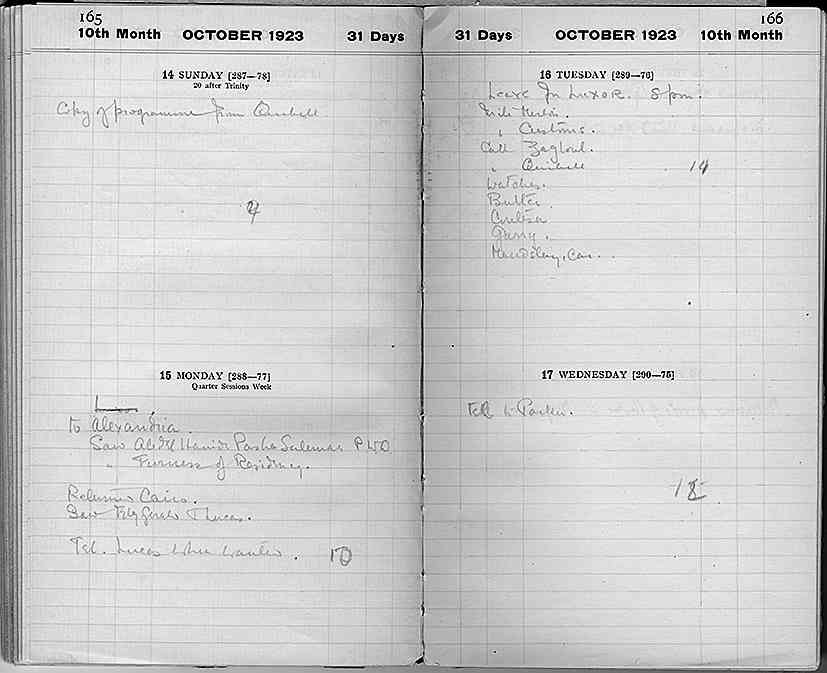 165
10th Month OCTOBER 1923 31 Days
14 SUNDAY [287—78]
20 after Trinity
Copy of programme from Quibell
15 MONDAY [288—77]
Quarter Sessions Week
To Alexandria.
Saw Abd el Hamid Pasha Suleman P.W.D
" Furness of Residency.
Returned Cairo.
Saw Lucas.
Tel. Lucas when wanted. 10
166
31 Days OCTOBER 1923 10th Month
16 TUESDAY [289—76]
Leave for Luxor. 8 pm.
Write Merton.
" Customs.
Call Zagloul.
" Quibell 14
Watches.
Butter.
Gurry.
Car.
17 WEDNESDAY [290—75]
Tel to Parker.
18